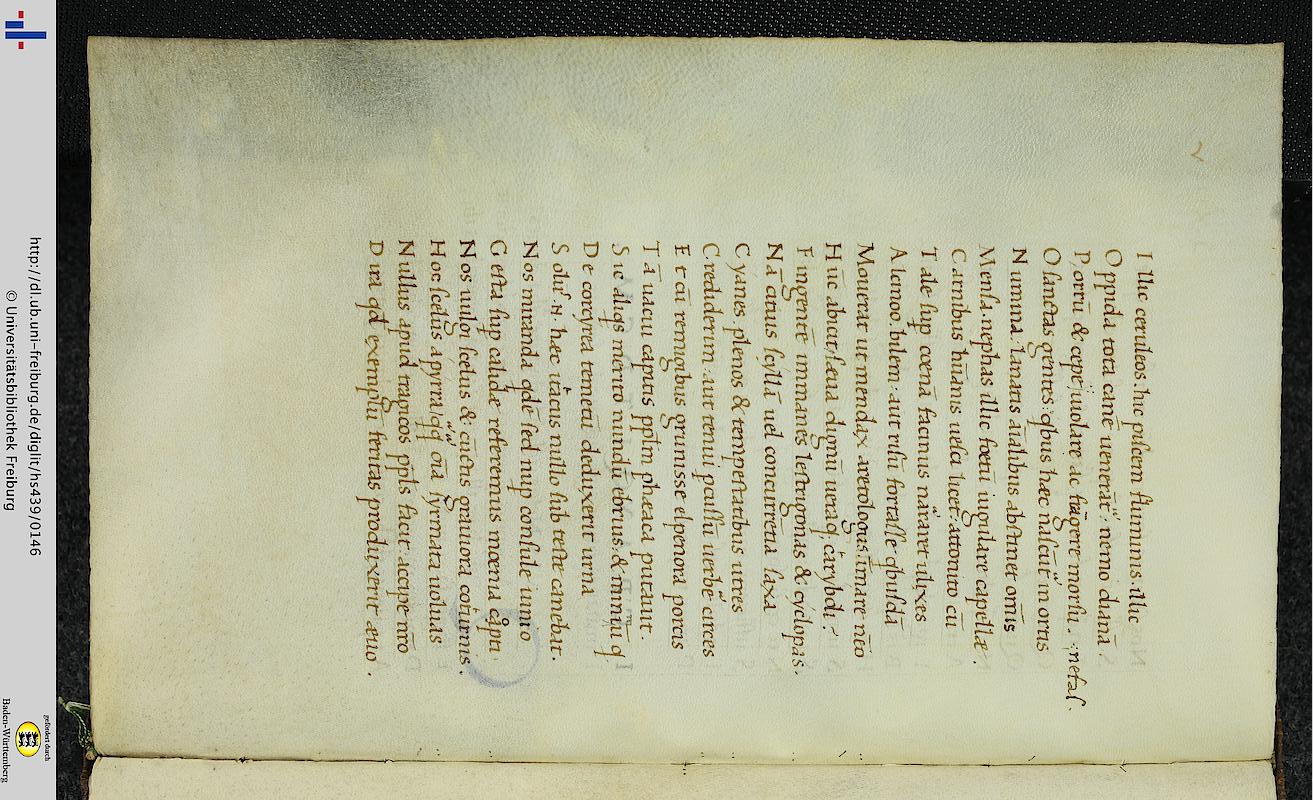 Illic ceruleos. hic piscem fluminis illic
Oppida tota canē uenerāt: nemo dianā.
Porrū & cepe uiolare ac frāgere morsu. :nefas.
O sanctas gentes: qbus hæc nascūt in ortis
Numina. lanatis aialibus abstinet omīs
Mensa. nephas illic foetū iugulare capellæ.
Carnibus hūanis uesci licet. attonito cū
Tale sup coenā facinus nararet ulixes
Alcinoo. bilem. aut risū fortasse qbusdā
Mouerat ut mendax aretologus. inare nēo
Hūc abicit. sæua dignū ueraq; carybdi?
Fingentē immanes lestrigonas & cyclopas.
Nā citius scyllā uel concurrētia saxa
Cyanes plenos & tempestatibus utres
Crediderim. aut tenui pcussū uerbē circes
Et cū remigibus grunisse elpenora porcis
Tā uacui capitis pplm phæaca putauit.
Sic aliqs merito nundū ebrius. & minimū q
De corcyrea temetū deduxerit urna
Solus .n. hæc itacus nullo sub teste canebat.
Nos miranda qdē sed nup consule iunio
Gesta sup calidæ referemus moenia capti
Nos uulgi scelus & cūctis grauiora coturnis.
Hoc scelus apyrra qq oīa syrmata uoluas
Nullus apud tragicos ppls facit. accipe nro
Dira qd exemplū feritas produxerit æuo.
http://dl.ub.uni-freiburg.de/diglit/hs439/0146
© Universitätsbibliothek Freiburg
gefördert durch
Baden-Württemberg